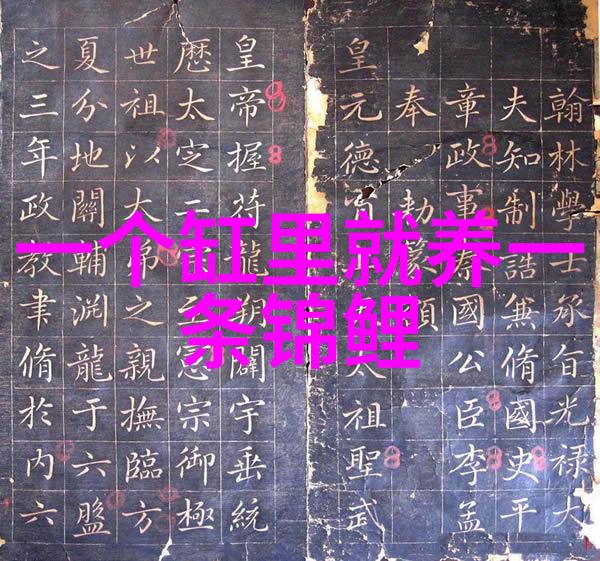 一个缸里就养一
条锦鲤
翰林學士承旨光祿大
夫知制誥兼脩國史平
章政事秦國公臣李孟
奉 勅篆額
皇元德太祖聖武
皇帝握符龍朔闢宇垂統
歷太定二憲宗御極
世祖以大弟之親撫臨方
夏分地關輔淵龍于六盤
之三年政教聿脩於內六